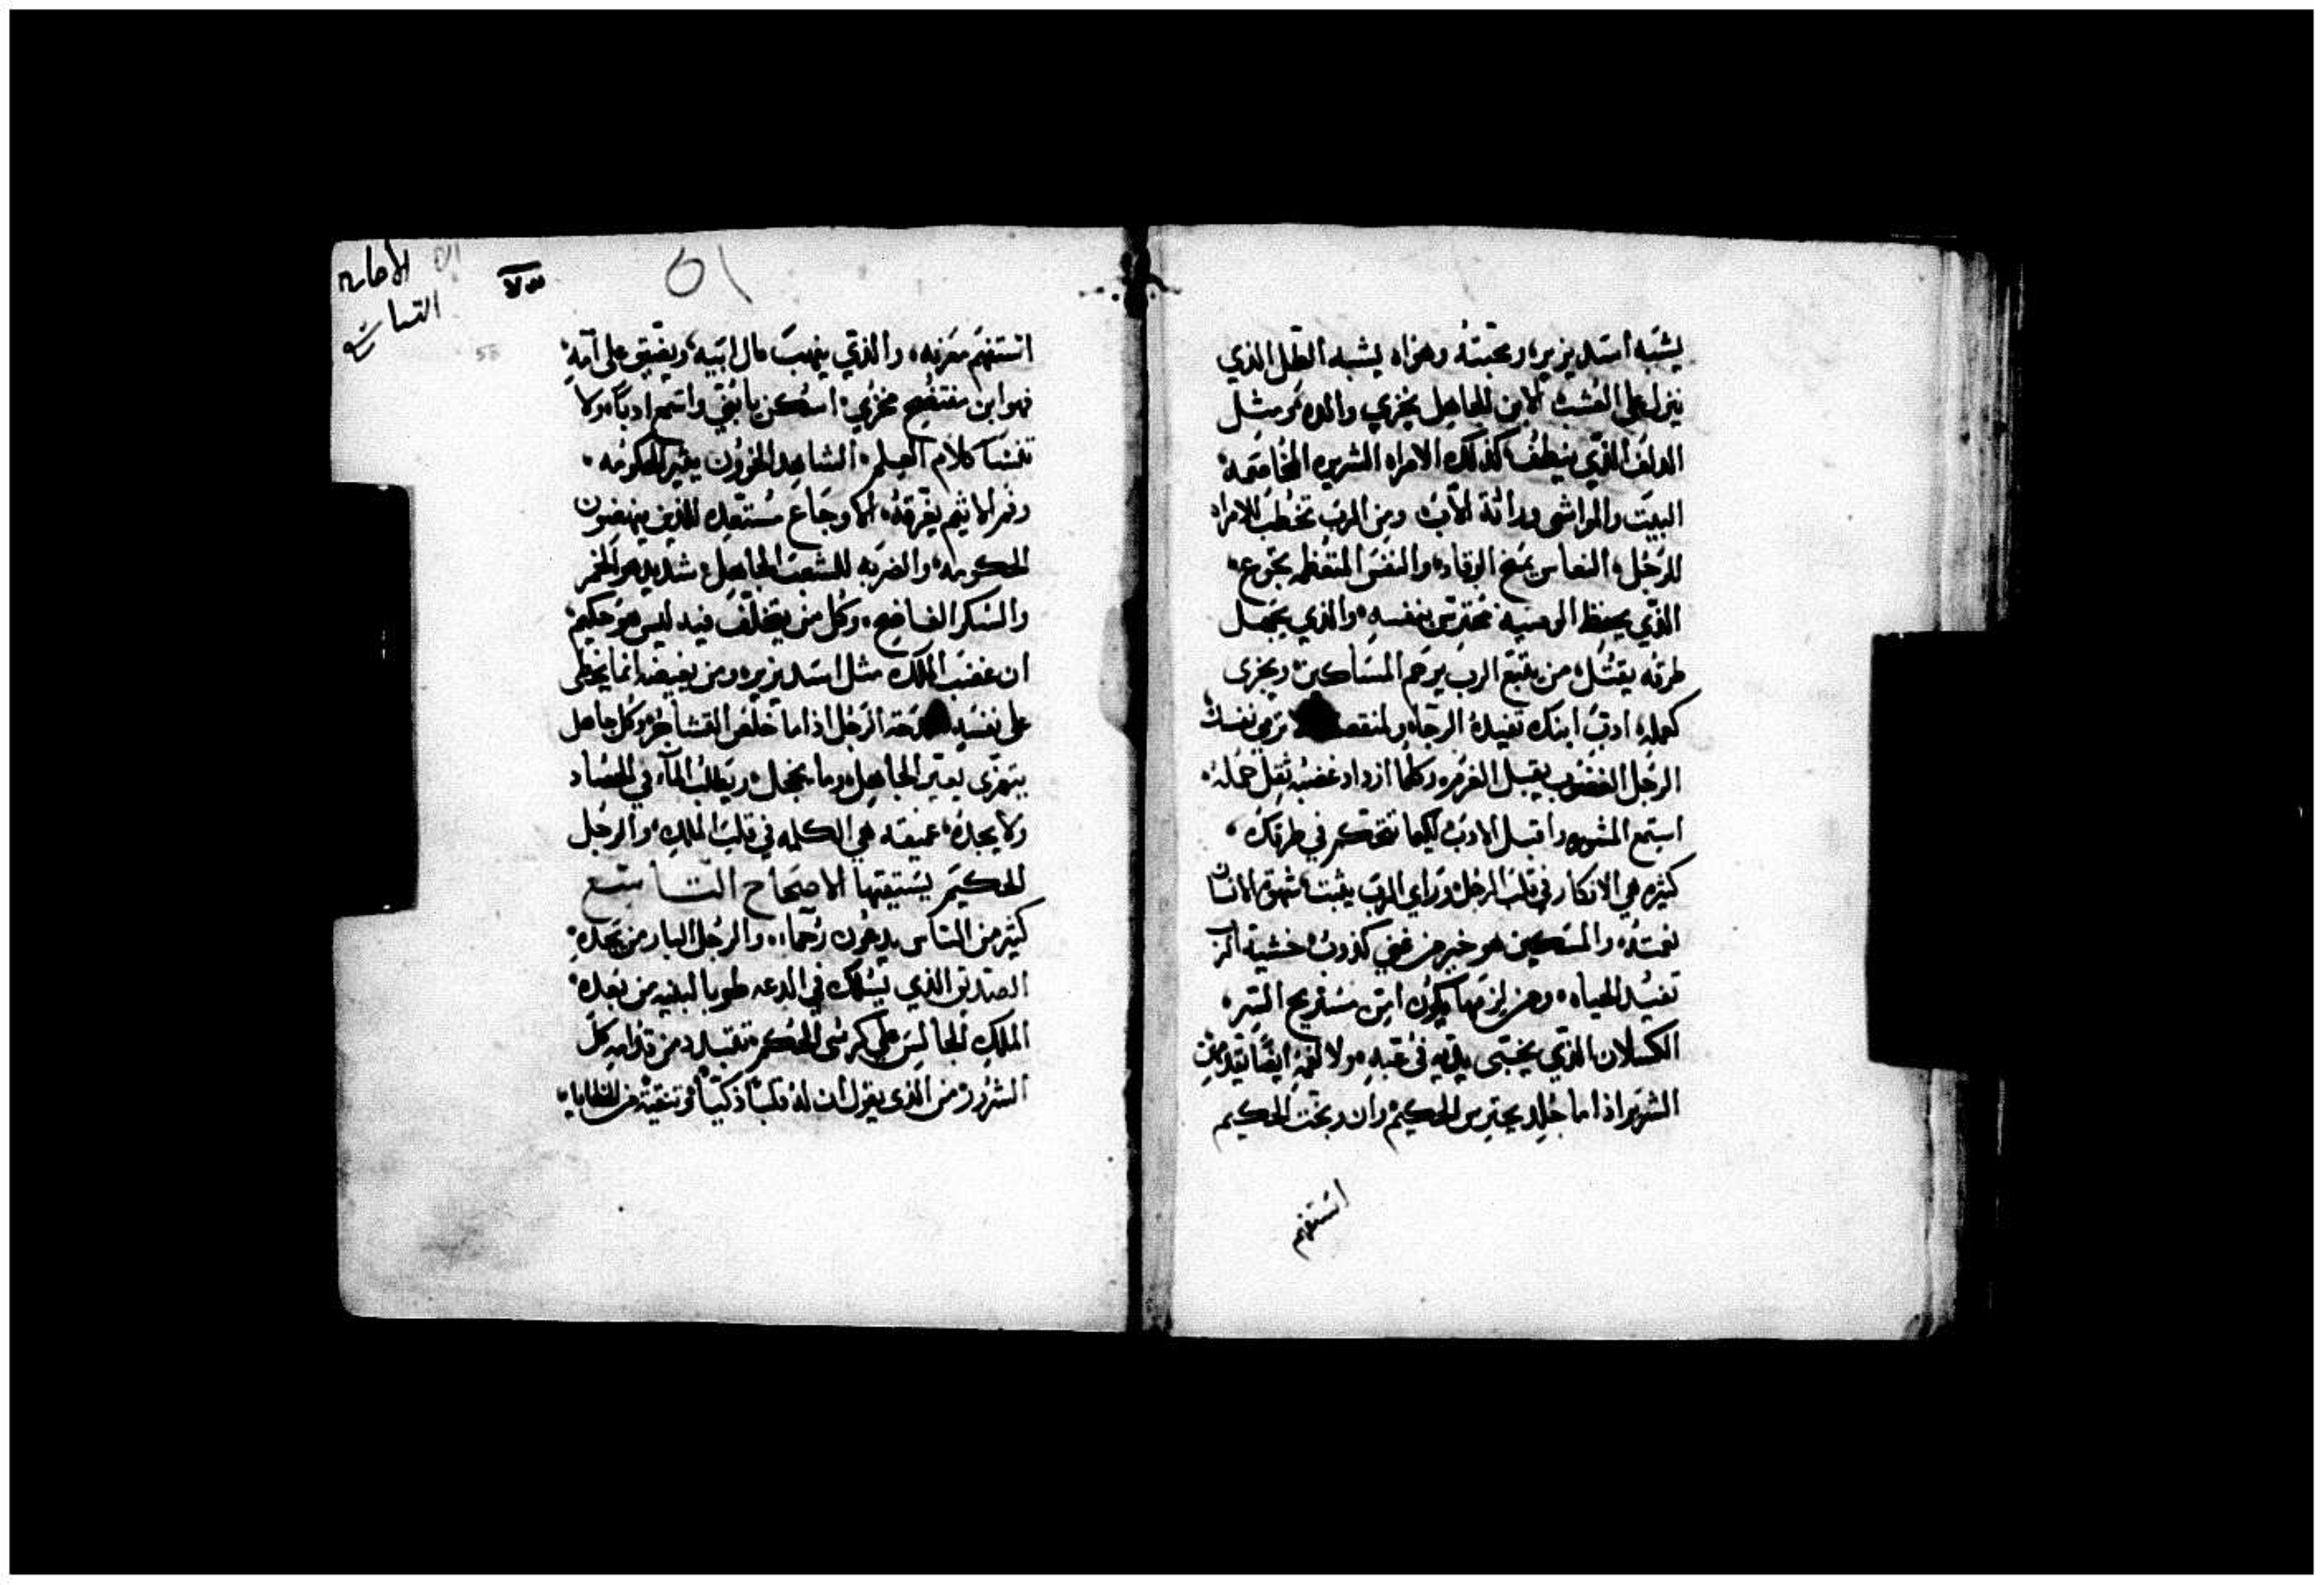 يشبه اسد يزير، ومحبته وهزاه يشبه الطل الذي
ينزل على العشب الابن الجاهل يخزي والده ومثل
الدلف الذي ينطف كذلك الامراه الشريره المخاصمه
البيت والمواشي وراثة الآب، ومن الرب تخطب الامراه
للرجل، النعاس يمنع الرقاد، والنفس المتعظمه تجوع،
الذي يحفظ الوصيه محترس بنفسه، والذي يجهل
طرقه يقتل، من يتبع الرب يرحم المساكين، ويجزى
كعمله، ادب ابنك تفيده الرجاء ترمي نفسك
الرجل الغضوب يقبل الغرم، وكلما ازداد غضبه ثقل حمله،
استمع المشوره واقبل الادب لكيما تتحكم في طرقك،
كثيره هي الافكار في قلب الرجل، وراي الرب يثبت، شهوة الانسان
نعمته، والمسكين هو خير من غني كذوب، خشية الرب
تفيد الحياه، ومن لزمها يكون امن مستريح السر،
الكسلان الذي يخبى يديه في عبه، ولا لفمه ايضًا يقدمهن
الشرير اذا ما جلد يحترس الحكيم، وان وبخت الحكيم
استفهم
الاصحاح
التاسع
٥١
55
استفهم معرفه، والذي ينهب مال ابيه، ويضيق على امه،
فهو ابن مفتضح مخزي، اسكن يا بني واتسمع ادبًا، ولا
تنسا كلام العلم، الشاهد الخوون يغير الحكومه،
وفم الاثيم يغرقه، الاوجاع مستعده للذين ينهضون
الحكومه، والضربه للشعب الجاهل، شديد هو الخمر
والسكر الفاضح، وكل من يتخلف فيه ليس هو حكيم،
ان غضب الملك مثل اسد يزير، ومن يغيضه انما يخطى
على نفسه الرجل اذا ما خلص القشاخر، وكل جاهل
يتهزى يعير الجاهل، وما يخجل، ويطلب الماء في الحصاد
ولا يجده، عميقه هي الكلمه في قلب الملك، والرجل
الحكيم يستقيها الاصحاح التاسع
كثير من الناس يدعون رُحماء، والرجل البار من يجده
الصديق الذي يسلك في الدعه طوبا لبنيه من بعده،
الملك الجالس على كرسى الحكم، تتبدد من قدامه كل
الشرور، من الذي يقول ان له قلبًا ذكيًا، وتنقيه من الخطايا،